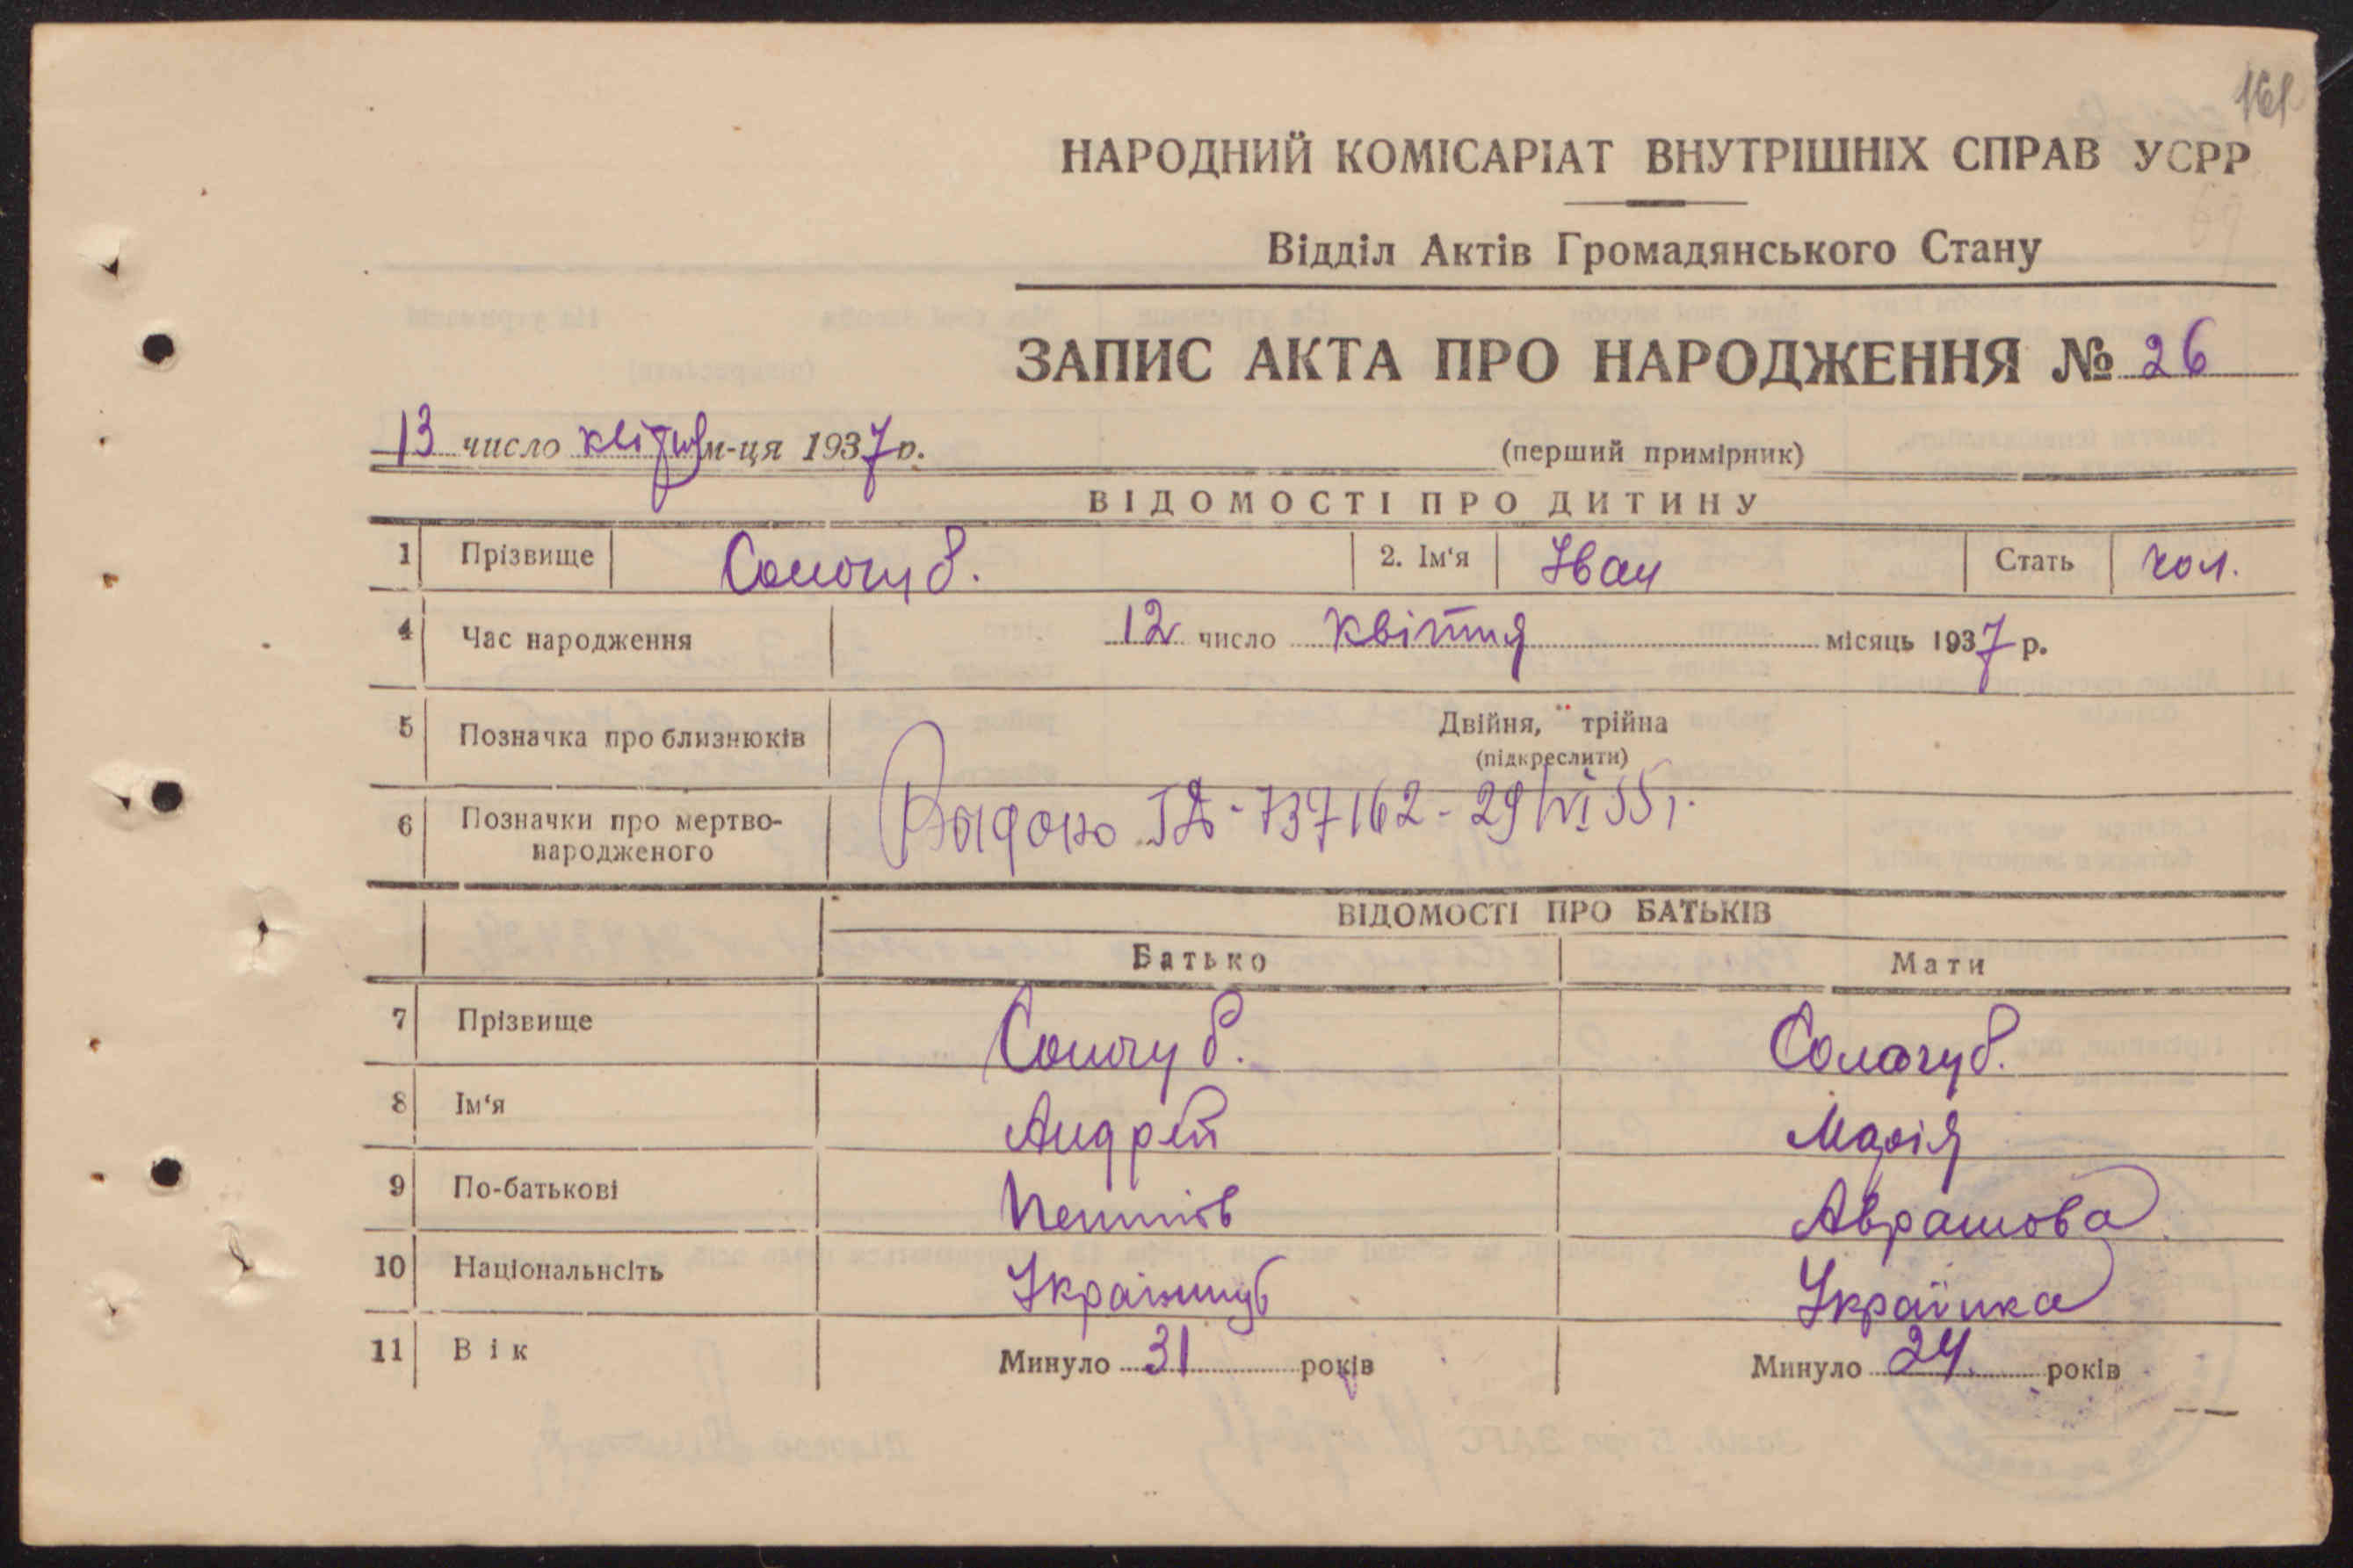 161
НАРОДНИЙ КОМІСАРІАТ ВНУТРІШНІХ СПРАВ УСРР
Відділ Актів Громадянського Стану
ЗАПИС АКТА ПРО НАРОДЖЕННЯ № 26
13 число квітня м-ця 1937 р.
(перший примірник)
ВІДОМОСТІ ПРО ДИТИНУ
1 Прізвище Сологуб. 2. Ім'я Іван Стать чол.
4 Час народження 12 число квітня місяць 1937 р.
5 Позначка про близнюків Двійня, трійна
(підкреслити)
6 Позначки про мертво-
народженого
737162 - 29/VI 55 г.
ВІДОМОСТІ ПРО БАТЬКІВ
Батько Мати
7 Прізвище Сологуб. Сологуб.
8 Ім'я Андрій Марія
9 По-батькові Аврамова
10 Національнсіть Українець Українка
11 Вік Минуло 31 років Минуло 24 років